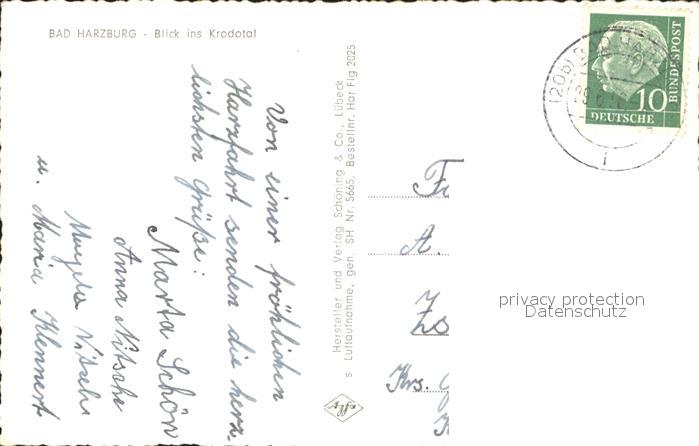 BAD HARZBURG - Blick ins Krodotal
Von einer fröhlichen
Harzfahrt senden die herz
lichsten Grüße:
Marta Schön
Anna Nitsche
Nitsche
u. Maria Klennert
Hersteller und Verlag Schöning & Co., Lübeck
s Luftaufnahme, gen. SH Nr. 5665, Bestellnr. Har Flg 2025
(20b) BAD HA
10
DEUTSCHE
BUNDESPOST
A.
Krs.
privacy protection
Datenschutz